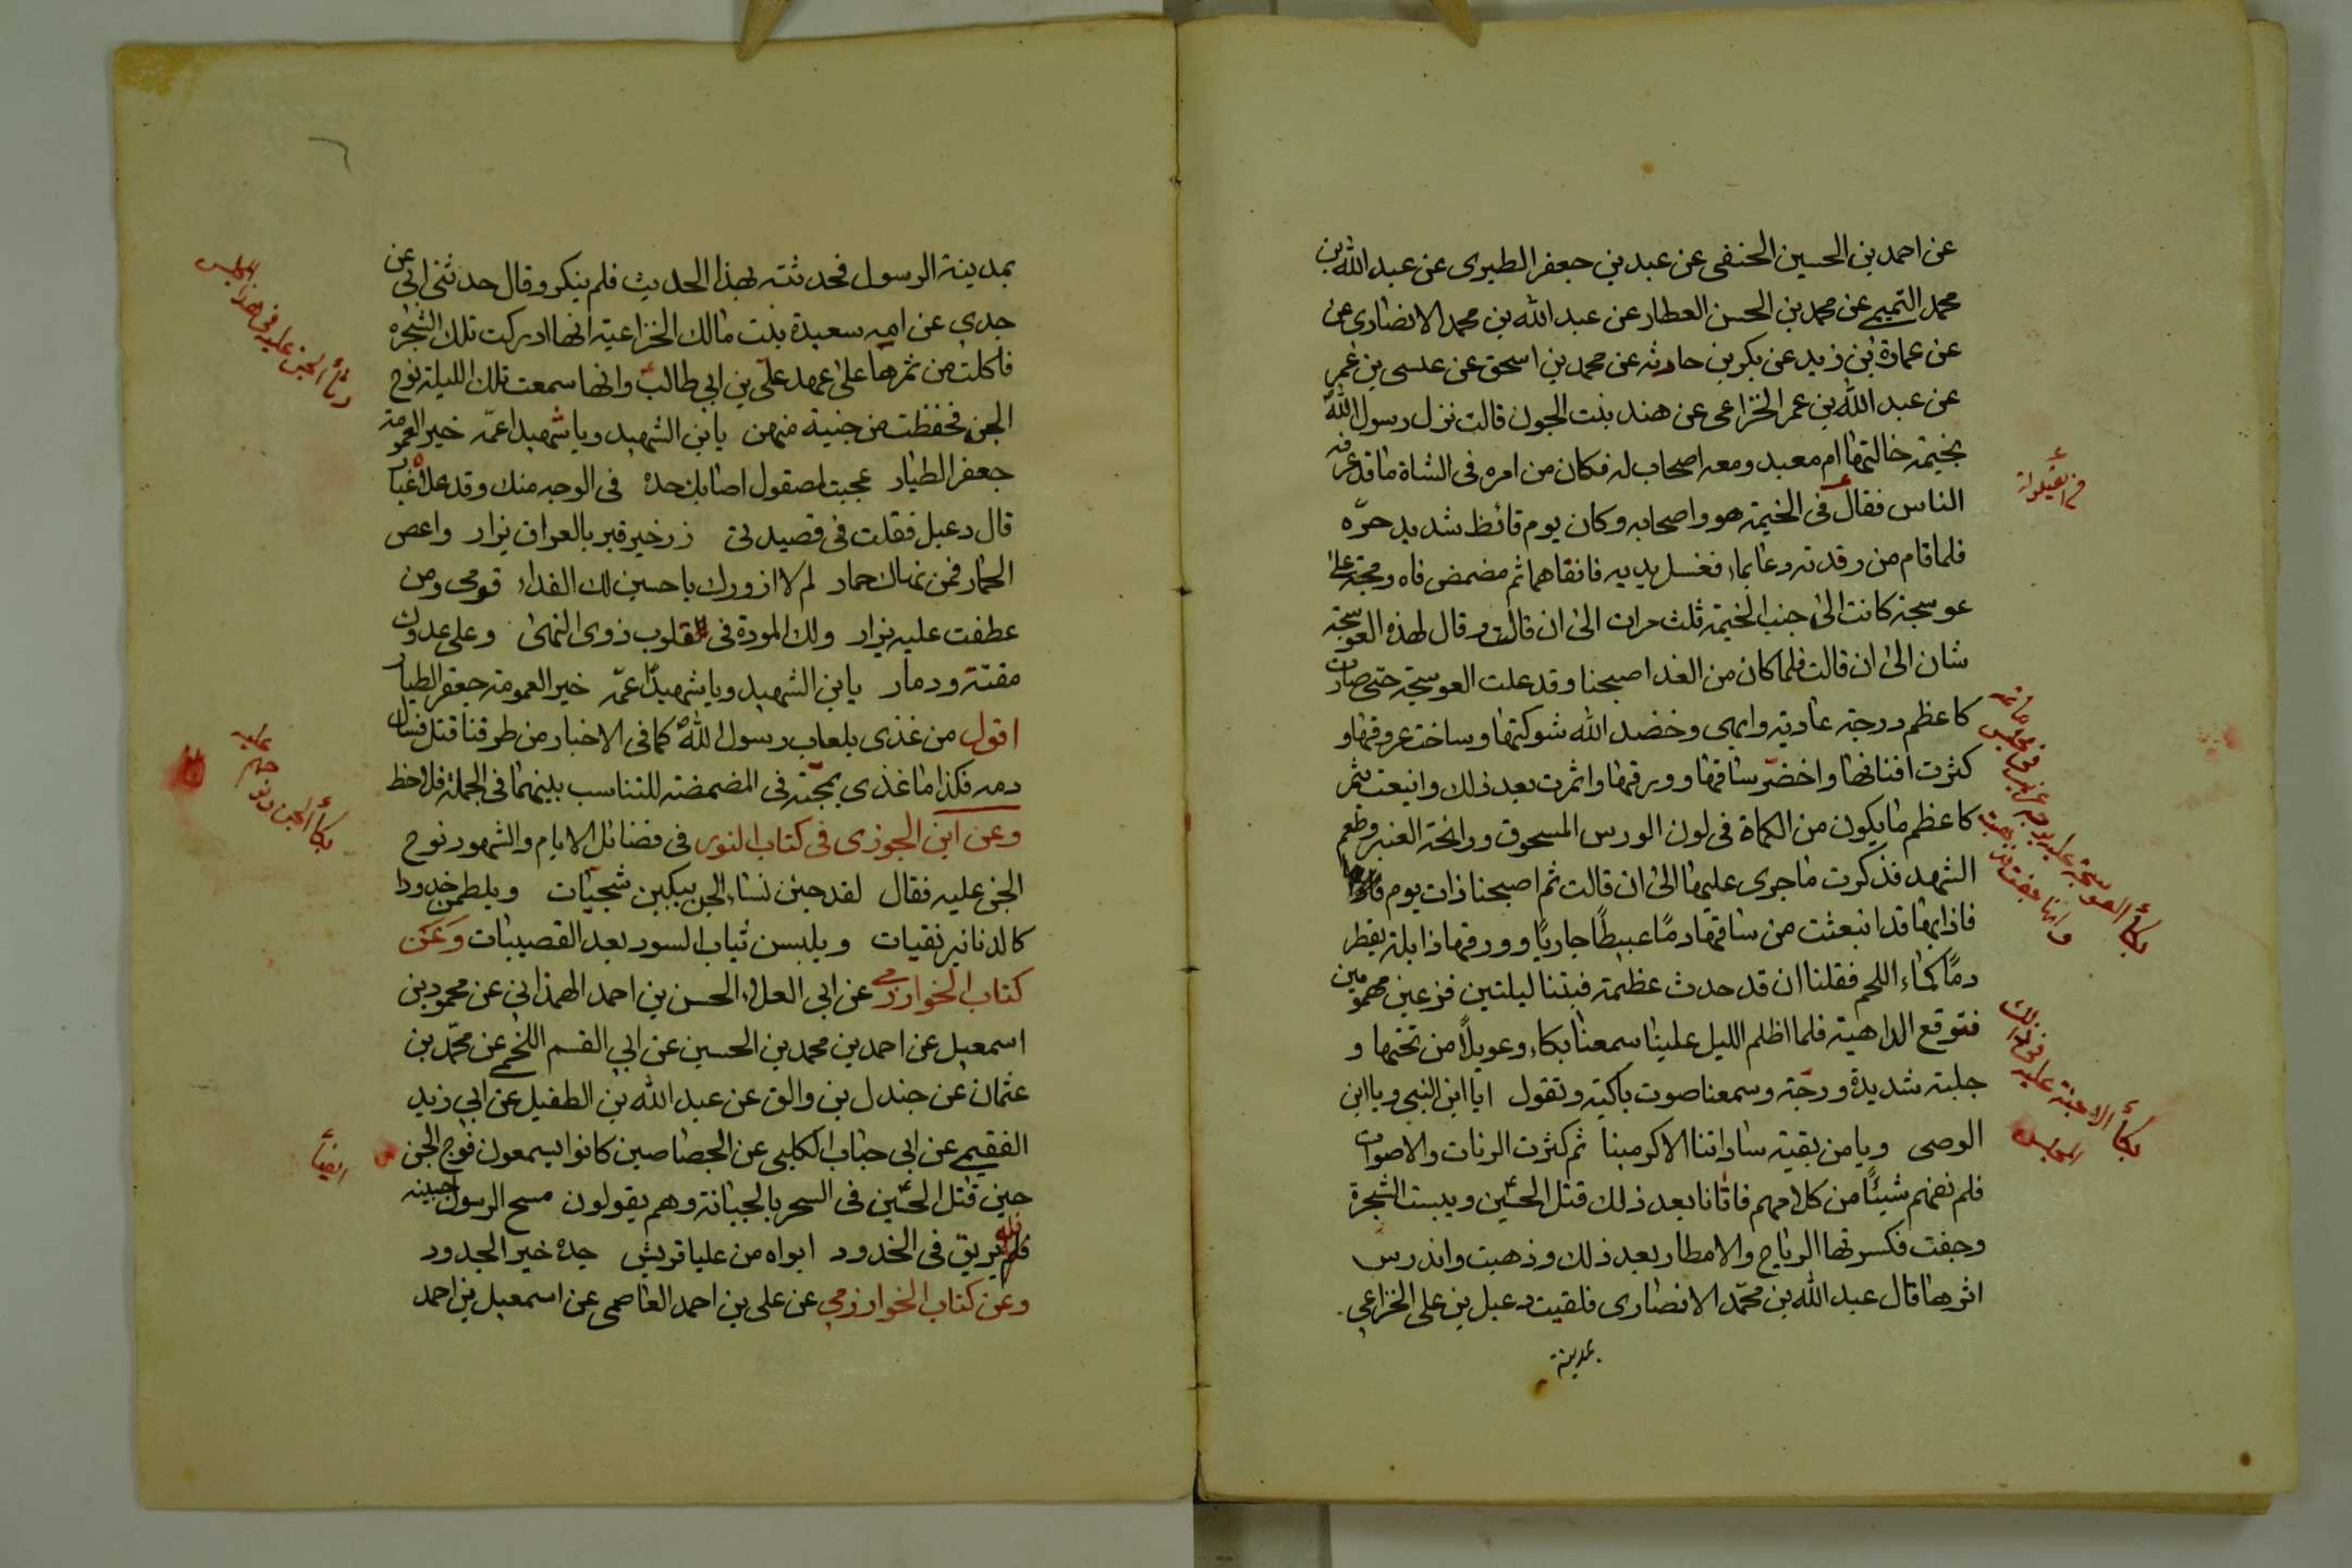 عن احمد بن الحسين الحنفى عن عبد بن جعفر الطبرى عن عبد الله بن
محمد التميمى عن محمد بن الحسن العطار عن عبد الله بن محمد الانصارى عن
عن عمارة بن زيد عن بكر بن حارثه عن محمد بن اسحق عن عيسى بن عمر
عن عبد الله بن عمر الخزاعى عن هند بنت الجون قالت نزل رسول الله
بخيمة خالتها ام معبد ومعه اصحاب له فكان من امره فى الشاة ما قد عرفه
الناس فقال فى الخيمة هو واصحابه وكان يوم قائظ شديد حرّه
فلما قام من رقدته دعا بماء فغسل يديه فانقاهما ثم مضمض فاه ومجه على
عوسجة كانت الى جنب الخيمة ثلث مرات الى ان قالت وقال لهذه العوسجة
شان الى ان قالت فلما كان من الغد اصبحنا وقد علت العوسجة حتى صارت
كاعظم دوحة عادية وابهى وخضد الله شوكتها وساخت عروقها و
كثرت افنانها واخضرّ ساقها وورقها واثمرت بعد ذلك واينعت بثمر
كاعظم ما يكون من الكماة فى لون الورس المسحوق ورائحة العنبر وطعم
الشهد فذكرت ما جرى عليها الى ان قالت ثم اصبحنا ذات يوم
فاذا بها قد انبعثت من ساقها دمًا عبيطًا جاريًا وورقها ذابلة يقطر
دمًا كماء اللحم فقلنا ان قد حدث عظيمة فبتنا ليلتين فزعين مهمومين
فتوقع الداهية فلما اظلم الليل علينا سمعنا بكاء وعويلاً من تحتها و
جلبة شديدة ورجّة وسمعنا صوت باكية وتقول ايا ابن النبى ويا ابن
الوصى ويا من بقية ساداتنا الاكرمينا ثم كثرت الرنات والاصوات
فلم نفهم شيئًا من كلامهم فاتانا بعد ذلك قتل الحسين ويبست الشجرة
وجفت فكسرتها الرياح والامطار بعد ذلك وذهبت واندرس
اثرها قال عبد الله بن محمّد الانصارى فلقيت دعبل بن على الخزاعى
بمدينة
بمدينة الرسول فحدثته بهذا الحديث فلم ينكر وقال حدثنى ابى عن
جدى عن امه سعيدة بنت مالك الخزاعية انها ادركت تلك الشجره
فاكلت من ثمرها على عهد على بن ابى طالب وانها سمعت تلك الليلة نوح
الجن فحفظت من جنية منهن يا بن الشهيد ويا شهيدا عمّه خير العمومة
جعفر الطيار عجبت لمصقول اصابك حده فى الوجه منك وقد علاه غبار
قال دعبل فقلت فى قصيدتى زر خير قبر بالعراق يزار واعص
الحمار فمن نهاك حمار لم لا ازورك يا حسين لك الفداء قومى ومن
عطفت عليه نزار ولك المودة فى قلوب ذوى النهى وعلى عدوك
مقتة ودمار يا بن الشهيد ويا شهيدًا عمّه خير العمومة جعفر الطيار
اقول من غذى بلعاب رسول الله كما فى الاخبار من طرقنا قتل فسال
دمه فكذا ما غذى بمجّته فى المضمضة للتناسب بينهما فى الجملة فلاحظ
وعن ابن الجوزى فى كتاب النور فى فضائل الايام والشهور نوح
الجن عليه فقال لقد جئن نساء الجن يبكين شجيات ويلطمن خدودا
كالدنانير نقيات ويلبسن ثياب السود بعد القصيبات وعن
كتاب الخوارزمى عن ابى العلاء الحسن بن احمد الهمذانى عن محمود بن
اسمعيل عن احمد بن محمد بن الحسين عن ابى القسم اللخمى عن محمّد بن
عثمان عن جندل بن والق عن عبد الله بن الطفيل عن ابى زيد
الفقيمى عن ابى جناب الكلبى عن الجصاصين كانوا يسمعون نوح الجن
حين قتل الحسين فى السحر بالجبانة وهم يقولون مسح الرسول جبينه
فله بريق فى الخدود ابواه من عليا قريش جده خير الجدود
وعن كتاب الخوارزمى عن على بن احمد العاصمى عن اسمعيل بن احمد
ايضاً